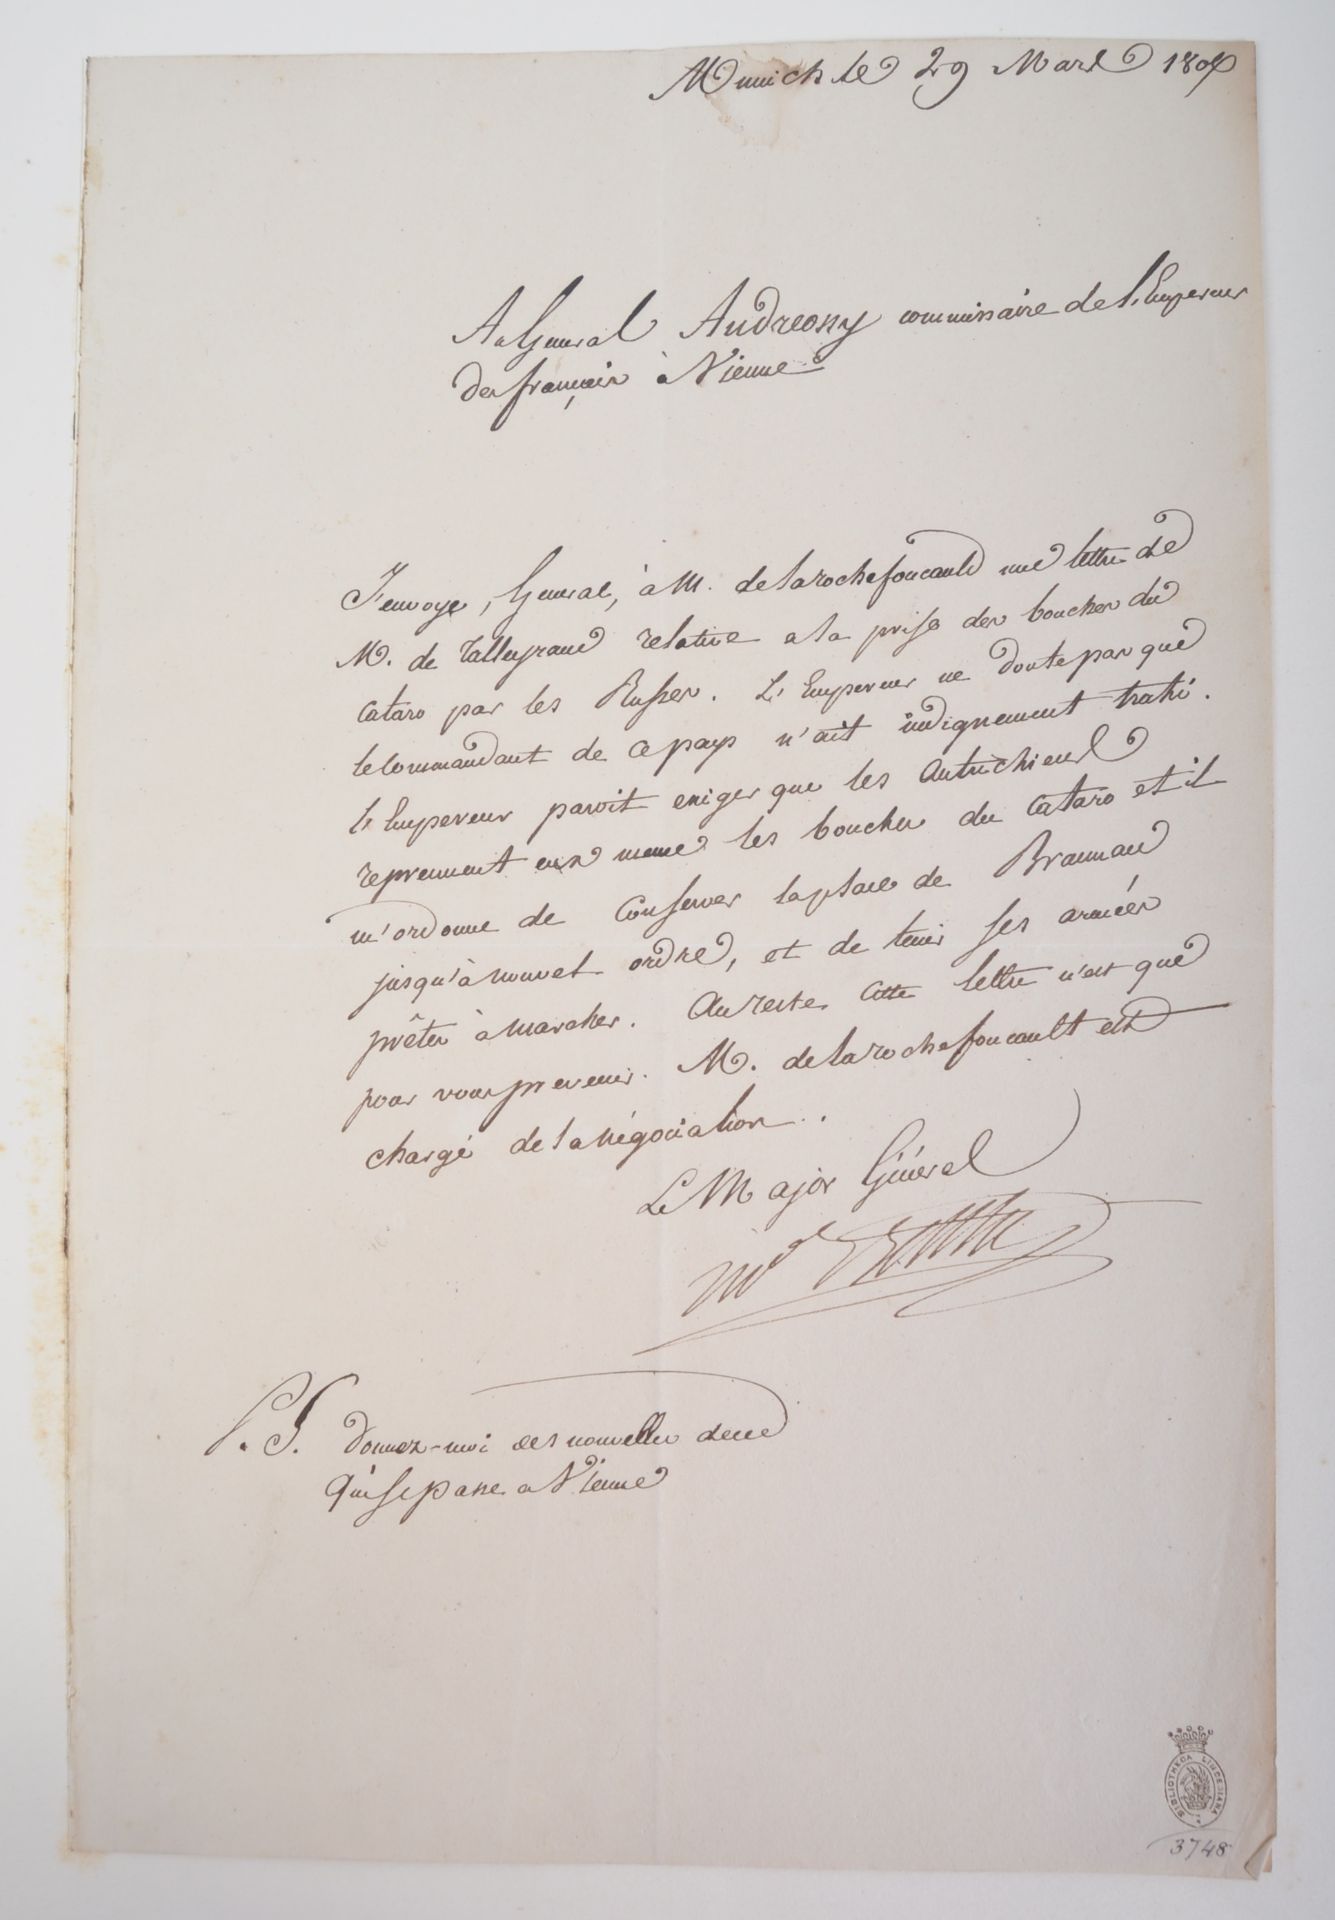 Munich le 29 Mars 180
Au General Andreossy commissaire de l'Empereur
des français à Vienne
J'envoye, General, à M. de Larochefoucauld une lettre de
M. de Talleyrand relative a la prise des bouches du
Cataro par les Russes. L'Empereur ne doute pas que
le Commandant de ce pays n'ait indignement trahi.
l'Empereur paroit exiger que les Autrichiens
reprennent eux meme les bouches du Cataro et il
m'ordonne de Conserver la place de Braunau
jusqu'à nouvel ordre, et de tenir ses armées
prêtes à marcher. Au reste cette lettre n'est que
pour vous prevenir. M. de Larochefoucault est
chargé de la négociation.
Le Major Général
Mal Berthier
P. S. donnez-moi des nouvelles de ce
qui se passe a Vienne
BIBLIOTHECA LINDESIANA
3748